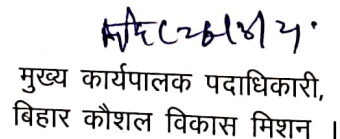 मुख्य कार्यपालक पदाधिकारी,
बिहार कौशल विकास मिशन ।